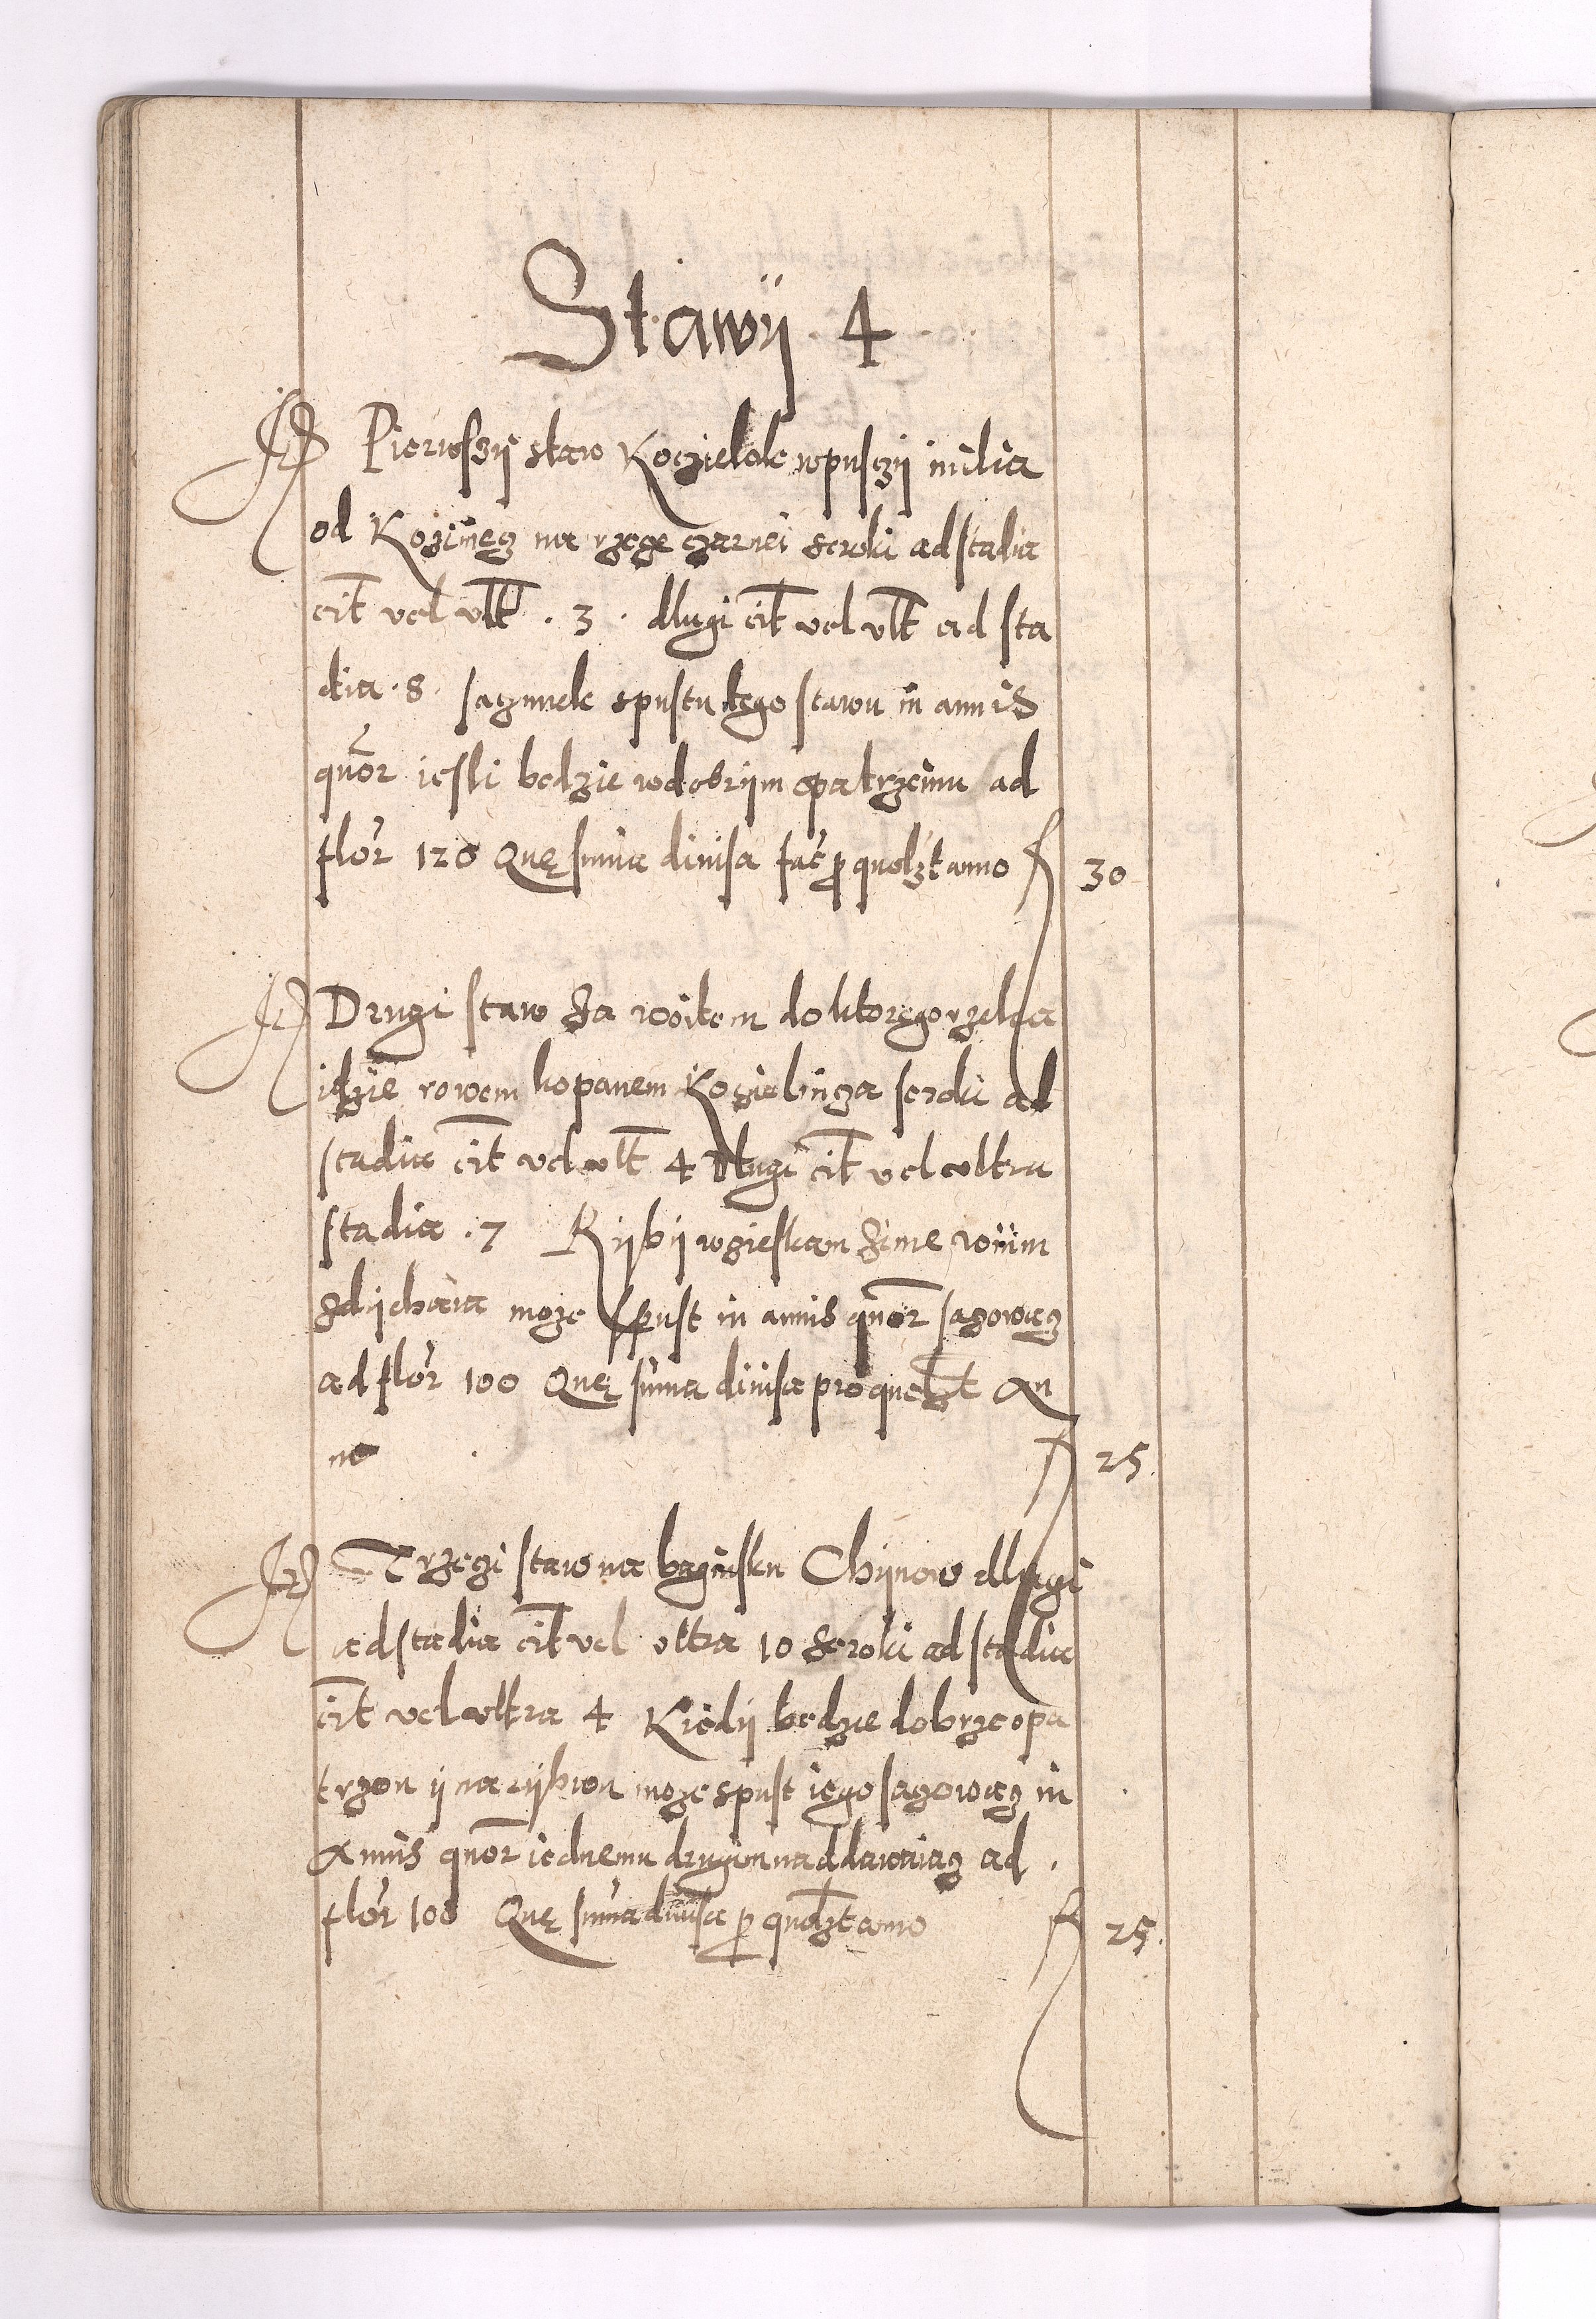 Stawÿ · 4
Jt Pierwszÿ staw Koczielek wpusczÿ milia
od Kozinecz na rzece czarnei seroki ad stadia
cit vel vlt · 3 · dlugi cit vel vlt ad sta
dia · 8 · saczunek spustu tego stawu in annis
quor iesli bedzie wdobrÿm opatrzeniu ad
flor 120 Quę suma diuisa fac p quolzt anno f 30
Jt Drugi staw za woitem do ktorego rzeka
idzie rowem kopanem seroki ad
stadia cit vel vlt 4 dlugi cit vel vltra
stadia · 7 Rÿbÿ zime wnim
zdÿchaia moze spust in annis quor sazowacz
ad flor 100 Quę suma diuisa pro quolzt an
no f 25
Jt Trzeczi staw na bagnisku Chÿnow dlugi
ad stadia cit vel vltra 10 seroki ad stadia
cit vel vltra 4 Kiedÿ bedzie dobrze opa
trzon ÿ narÿbion moze spust iego sazowacz in
annis quor iednemu drugim naddawaiacz ad ·
flor 100 Quę suma diuisa p quolzt anno f 25